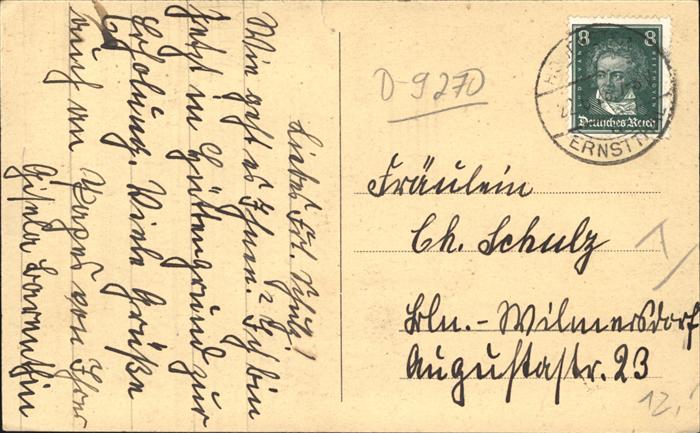 Liebes Frl. Schulz!
Wie geht es Ihnen? Ich bin
jetzt in Hüttengrund zur
Erholung. Viele Grüße
auch an von Ihrer
Gisela
D-9270
8 8
Deutsches Reich
ERNSTTHAL
Fräulein
Ch. Schulz
Bln.-Wilmersdorf
Augustastr. 23
12,